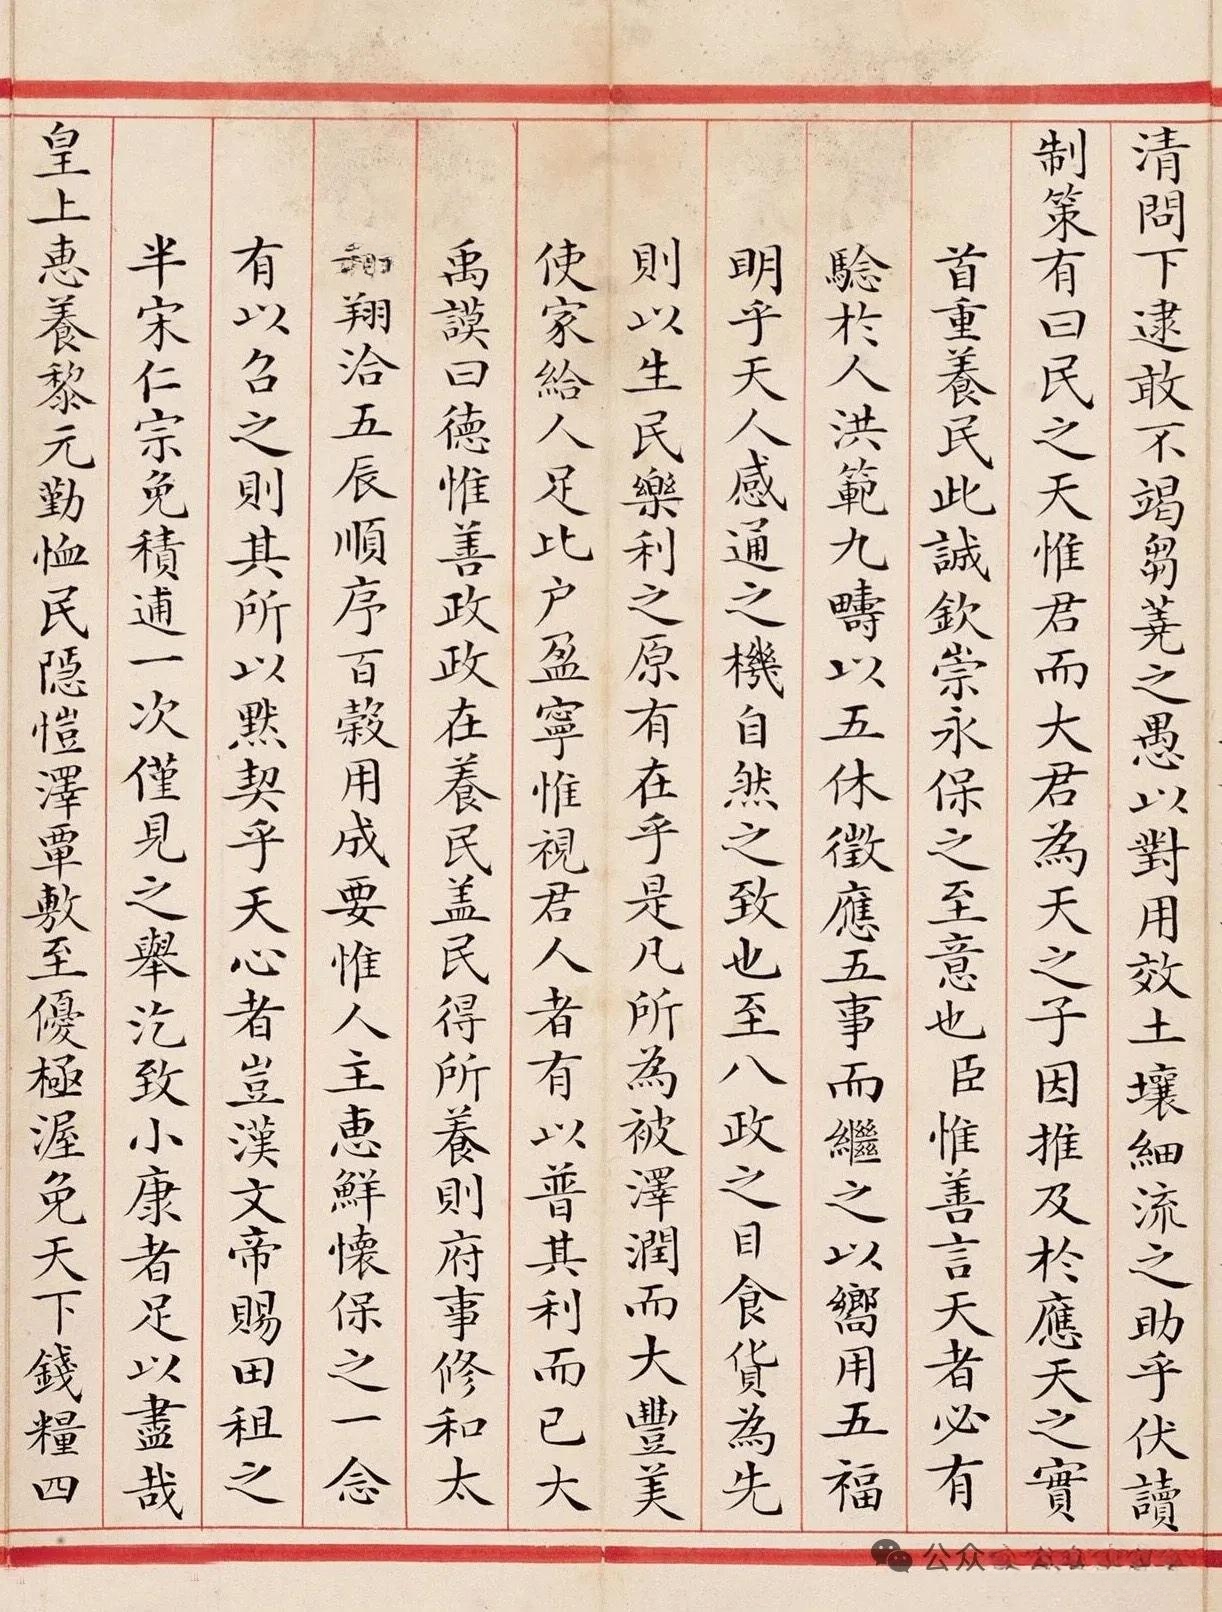 清問下逮敢不竭芻蕘之愚以對用效土壤細流之助乎伏讀
制策有曰民之天惟君而大君為天之子因推及於應天之實
首重養民此誠欽崇永保之至意也臣惟善言天者必有
驗於人洪範九疇以五休徵應五事而繼之以嚮用五福
明乎天人感通之機自然之致也至八政之目食貨為先
則以生民樂利之原有在乎是凡所為被澤潤而大豐美
使家給人足比户盈寧惟視君人者有以普其利而已大
禹謨曰德惟善政政在養民盖民得所養則府事修和太
翔洽五辰順序百穀用成要惟人主惠鮮懐保之一念
有以召之則其所以黙契乎天心者豈漢文帝賜田租之
半宋仁宗免積逋一次僅見之舉汔致小康者足以盡哉
皇上惠養黎元勤恤民隱愷澤覃敷至優極渥免天下錢糧四
公众